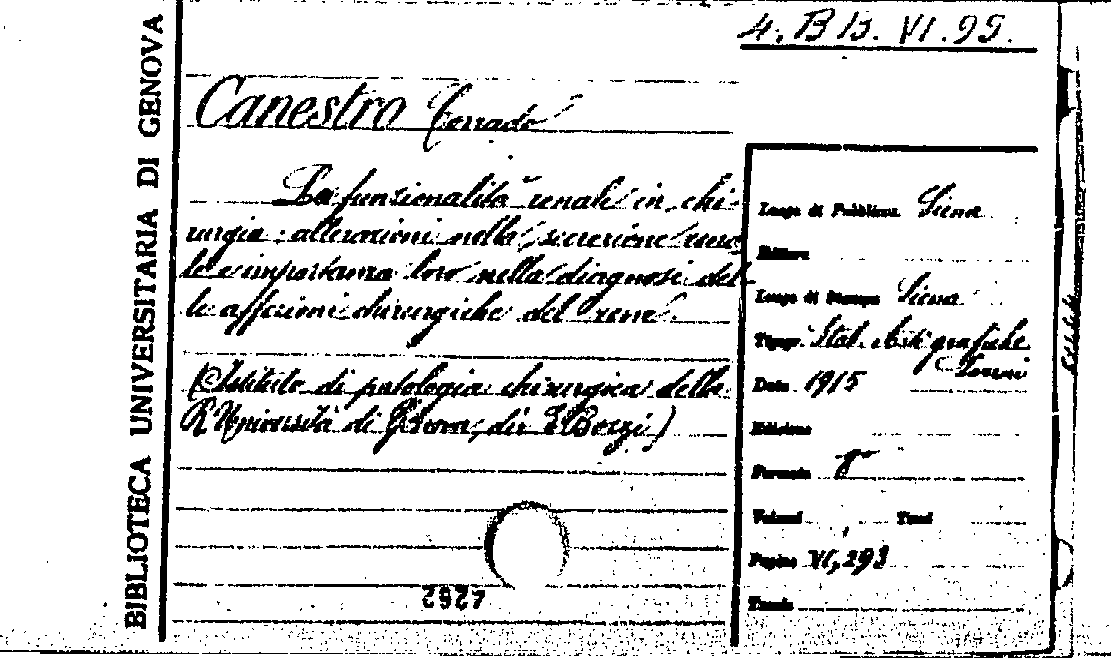 4. BB. VI. 99.
BIBLIOTECA UNIVERSITARIA DI GENOVA
Canestro Corrado
La funzionalità renale in chi-
rurgia: alterazioni nella secrezione rena
le e importanza loro nella diagnosi del-
le affezioni chirurgiche del rene.
(Istituto di patologia chirurgica della
R. Università di Genova, dir.
Luogo di Pubblicaz. Siena
Editore
Luogo di Stampa Siena
Tipogr. Stab. Arti grafiche
Data 1915
Edizione
Formato 8°
Volumi Tomi
Pagine VI, 293
Tavole
4262